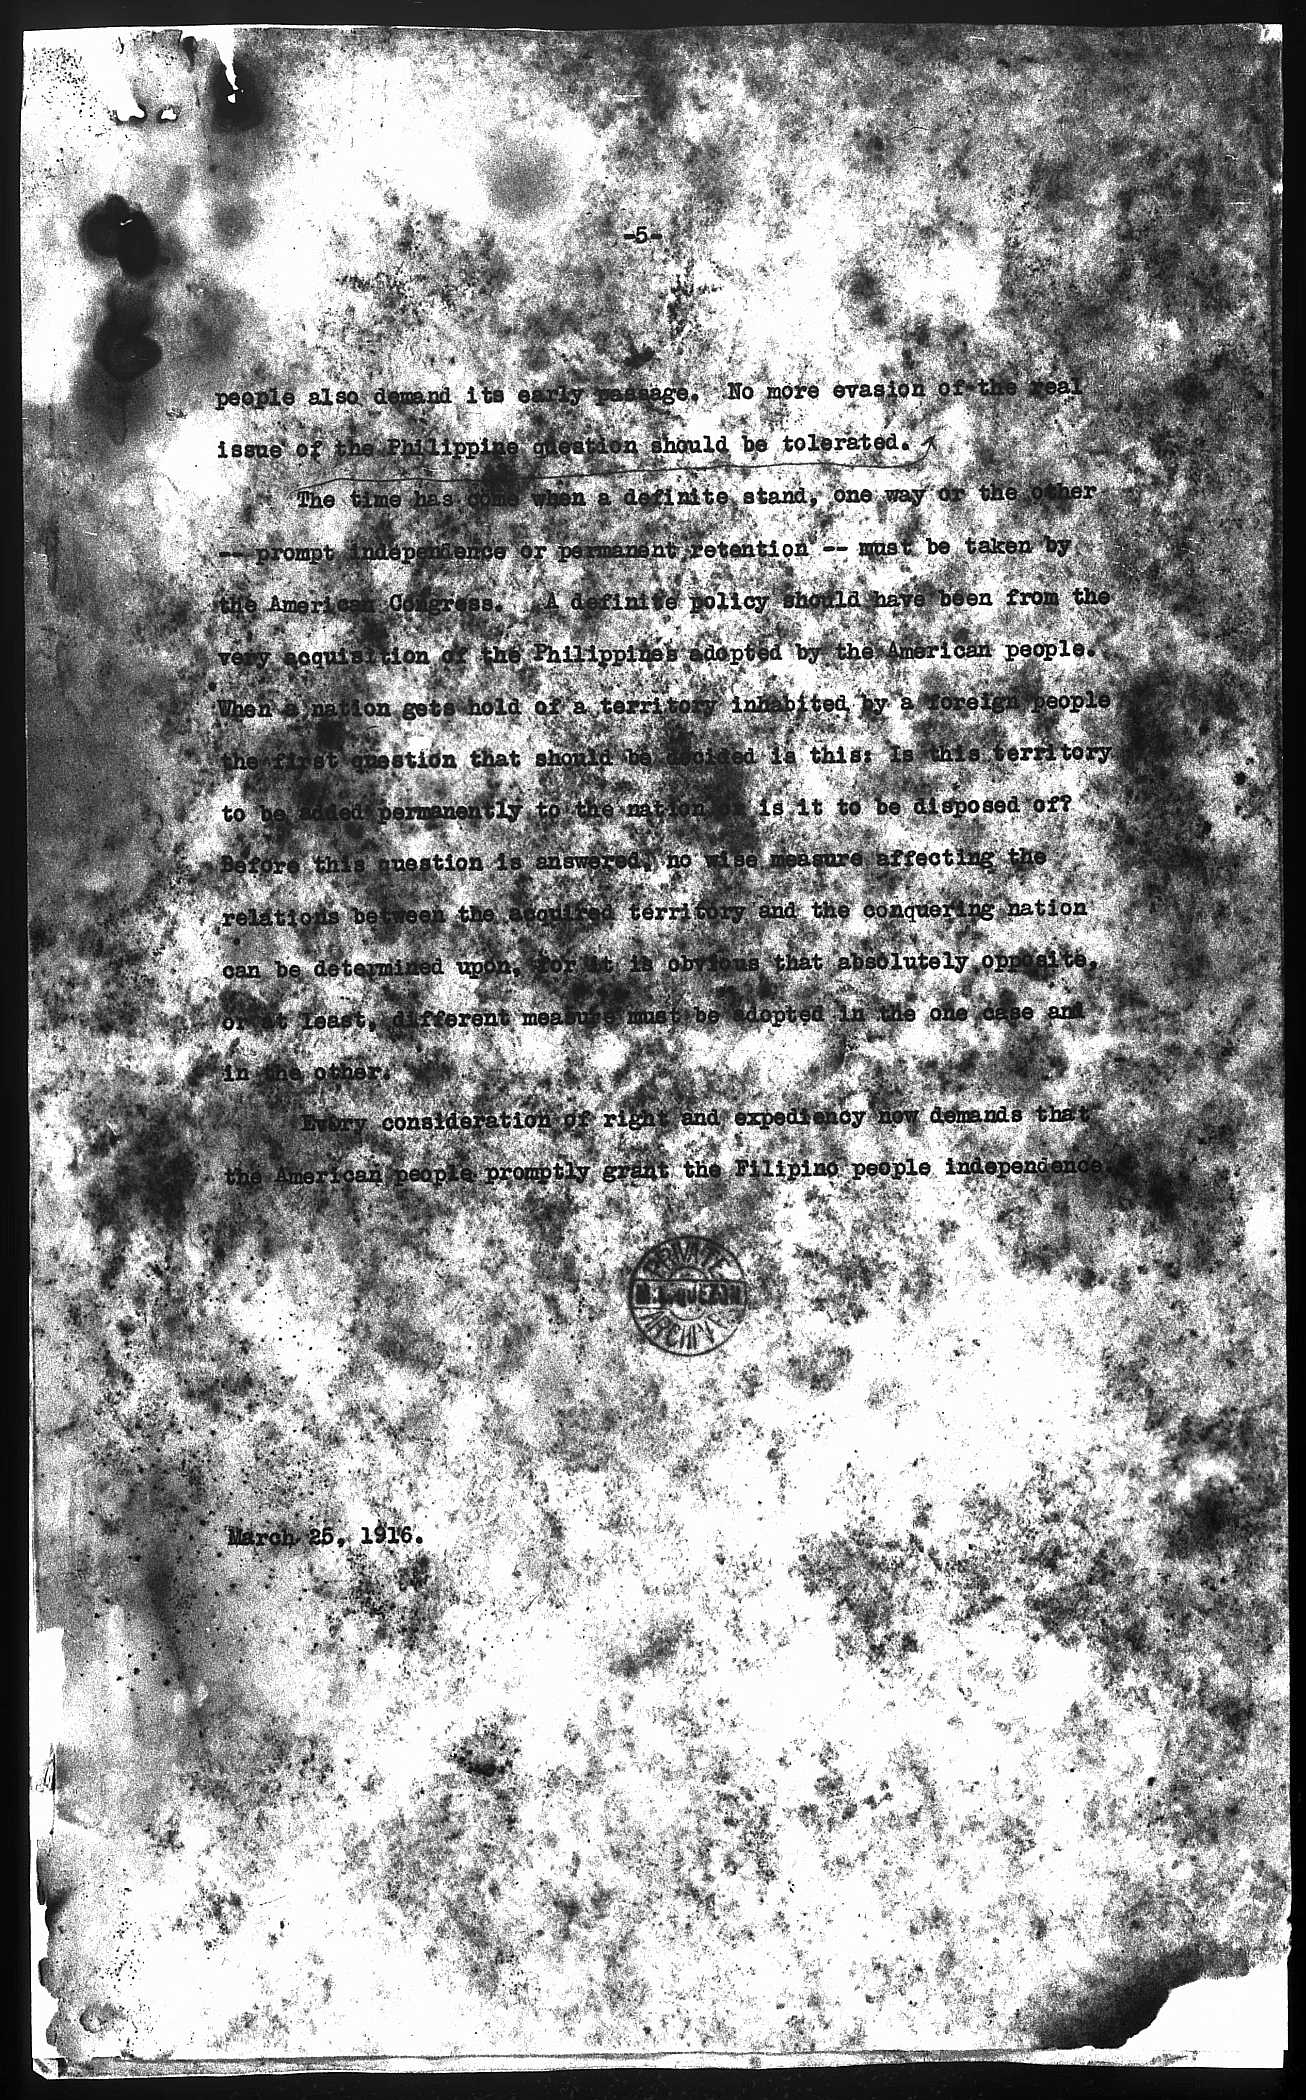 -5-
people also demand its early passage. No more evasion of the real
issue of the Philippine question should be tolerated.
The time has come when a definite stand, one way or the other
-- prompt independence or permanent retention -- must be taken by
the American Congress. A definite policy should have been from the
very acquisition of the Philippines adopted by the American people.
When a nation gets hold of a territory inhabited by a foreign people
the first question that should be decided is this: Is this territory
to be added permanently to the nation or is it to be disposed of?
Before this question is answered, no wise measure affecting the
relations between the acquired territory and the conquering nation
can be determined upon, for it is obvious that absolutely opposite,
or at least, different measure must be adopted in the one case and
in the other.
Every consideration of right and expediency now demands that
the American people promptly grant the Filipino people independence.
PRIVATE
M. L. QUEZON
ARCHIVE
March 25, 1916.